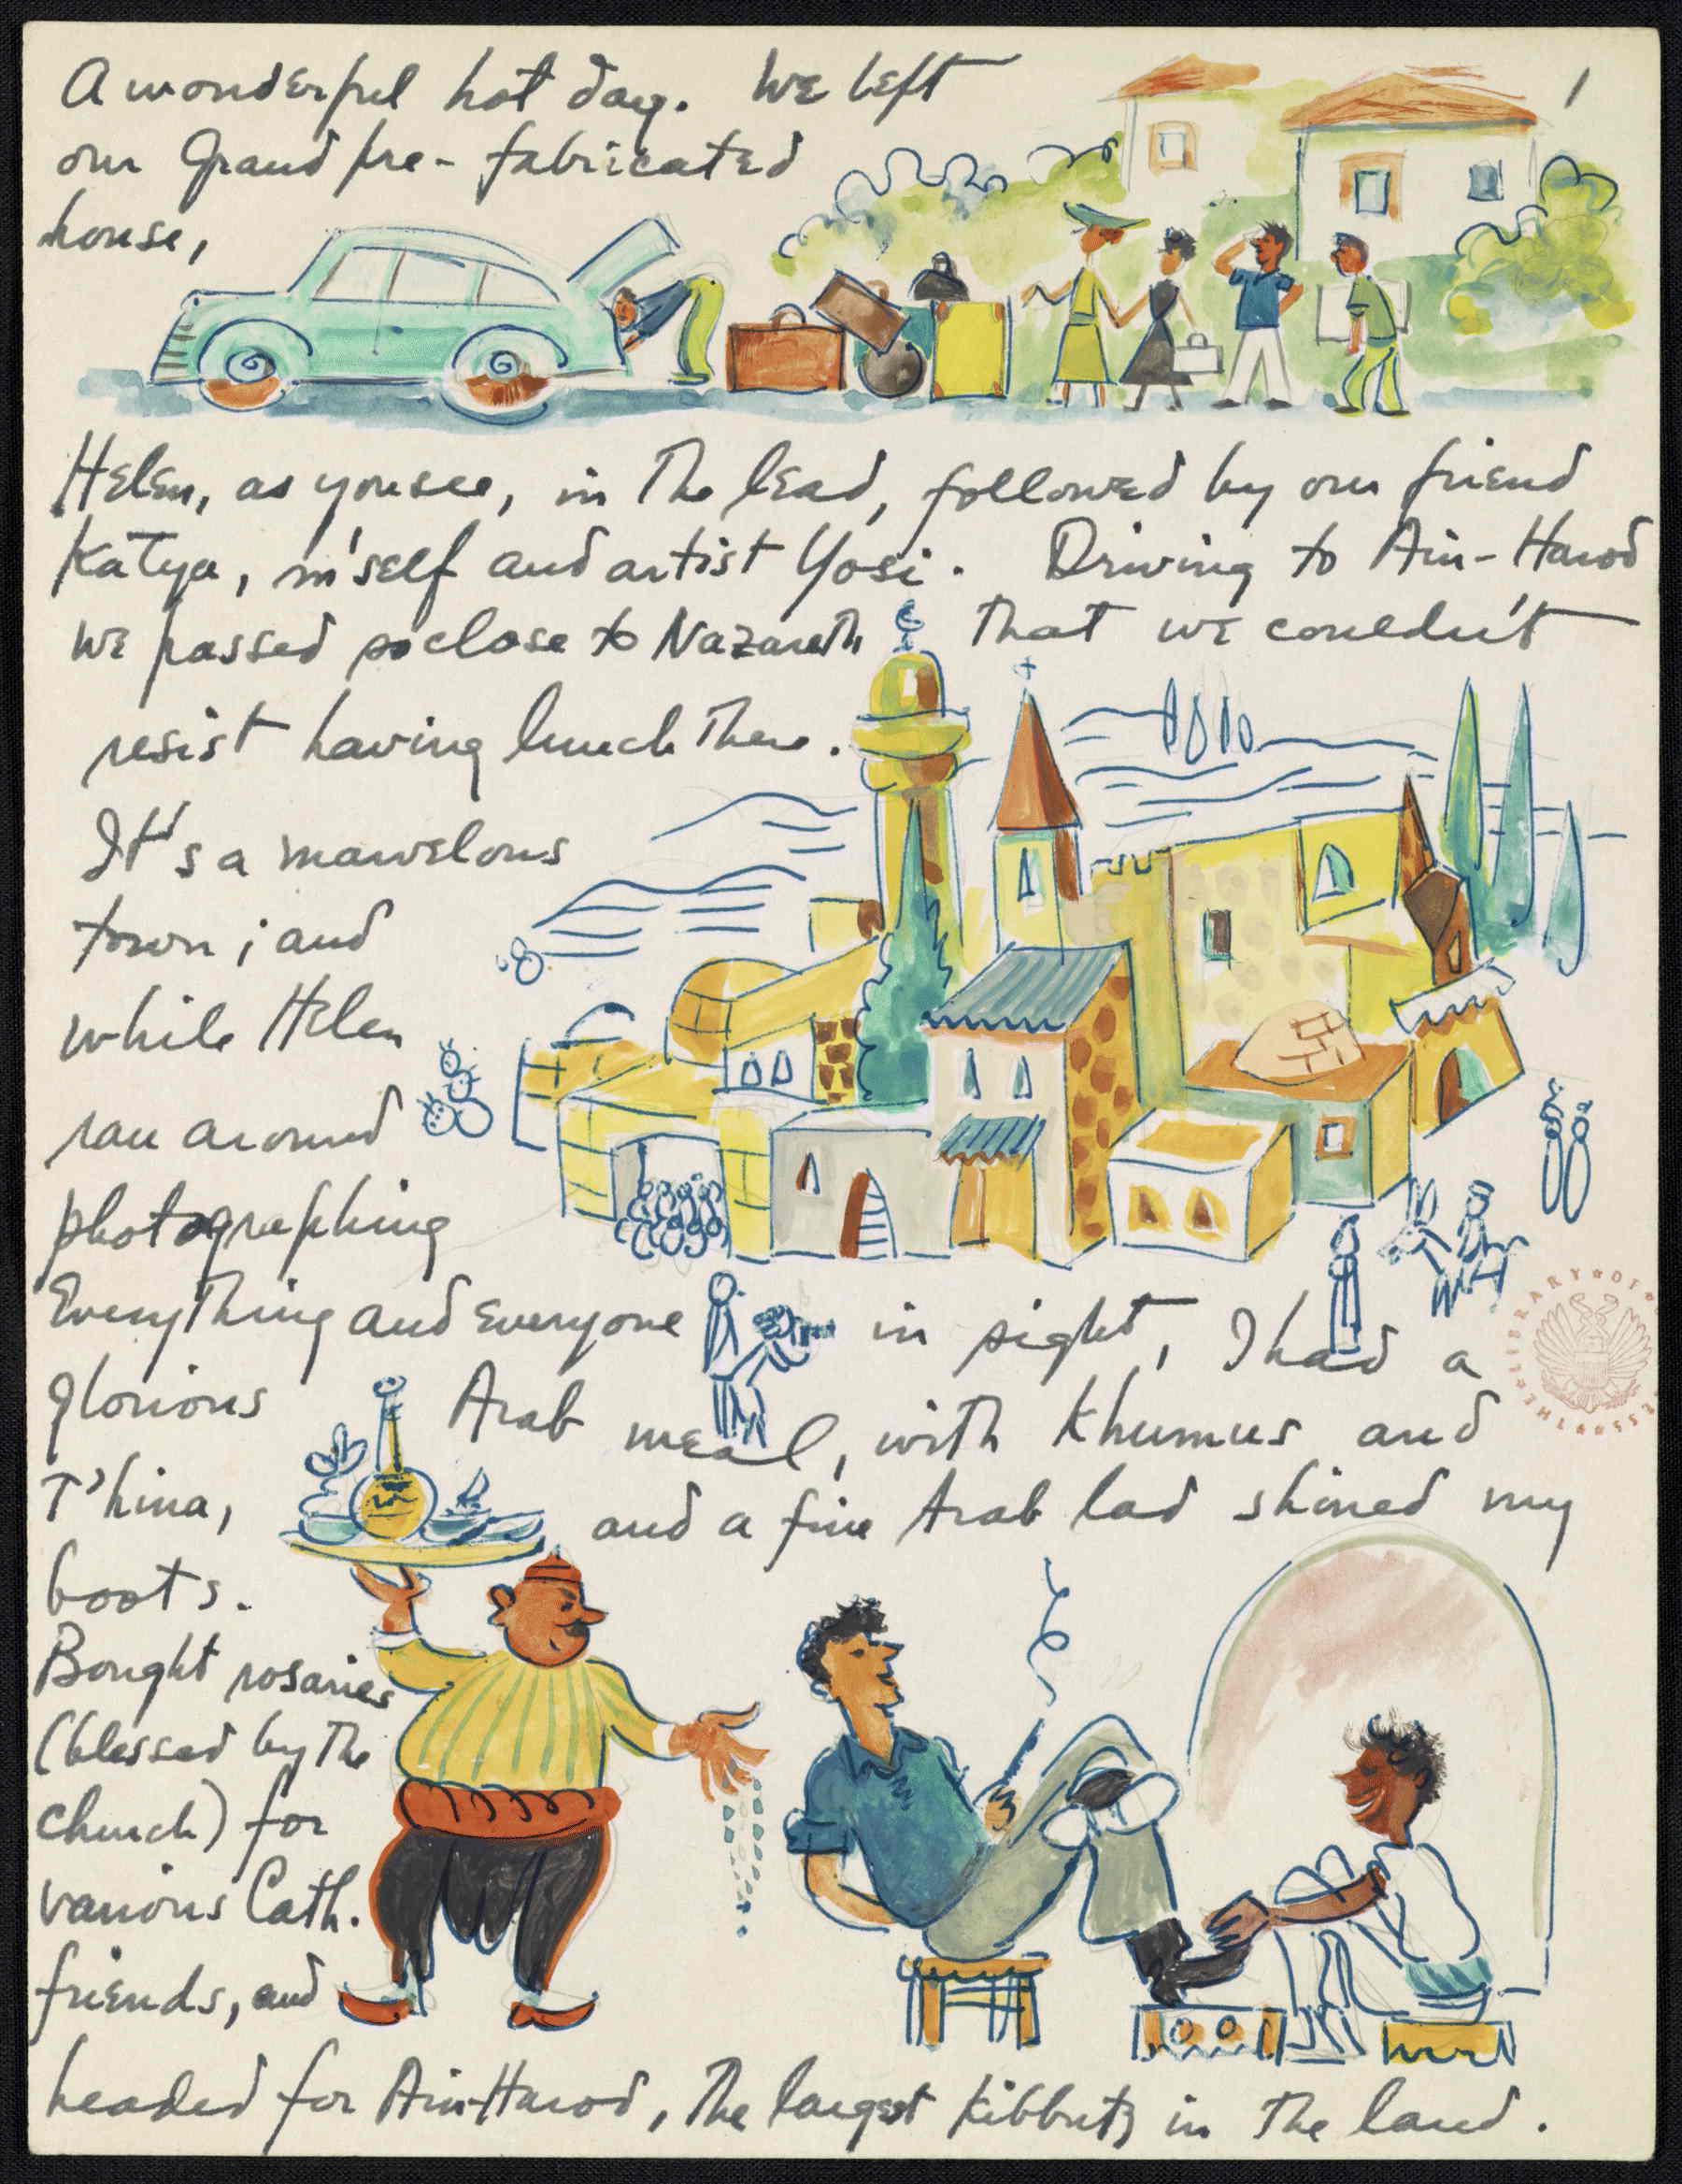 A wonderful hot day. We left
1
our Grand pre-fabricated
house,
Helen, as you see, in the lead, followed by our friend
Katya, m'self and artist Yosi. Driving to Ain-Harod
we passed so close to Nazareth that we couldn't
resist having lunch there.
It's a marvelous
town; and
while Helen
ran around
photographing
Everything and everyone in sight, I had a
glorious Arab meal, with Khumus and
T'hina, and a fine Arab lad shined my
boots.
Bought rosaries
(blessed by the
church) for
various Cath.
friends, and
headed for Ain-Harod, the largest Kibbutz in the land.
THE LIBRARY OF